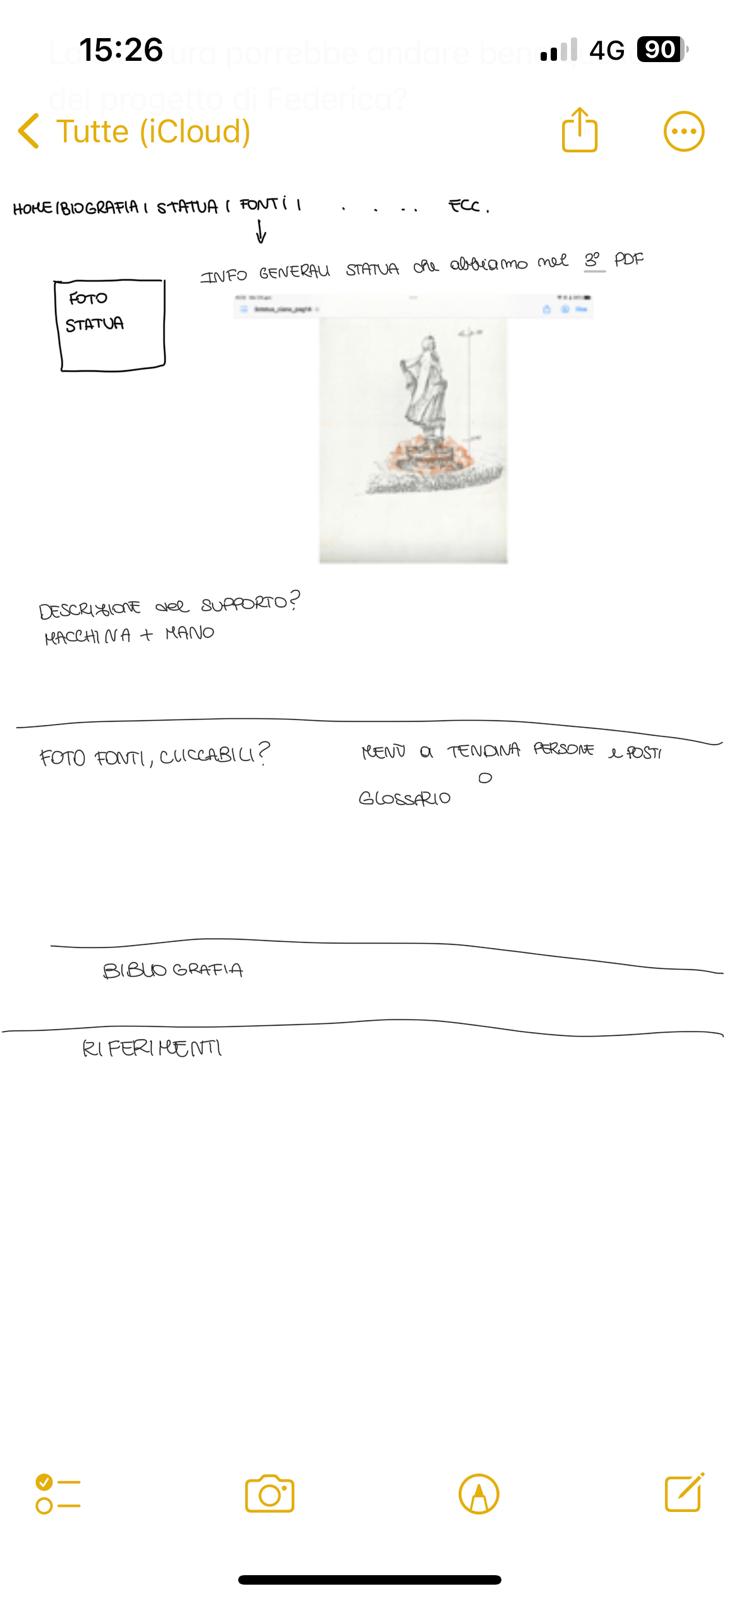 15:26
4G
90
del progetto di Federica?
Tutte (iCloud)
HOME | BIOGRAFIA | STATUA | FONTI | . . . . ECC.
INFO GENERALI STATUA che abbiamo nel 3° PDF
FOTO
STATUA
DESCRIZIONE del SUPPORTO?
MACCHINA + MANO
FOTO FONTI, CLICCABILI?
MENÙ a TENDINA PERSONE e POSTI
O
GLOSSARIO
BIBLIOGRAFIA
RIFERIMENTI